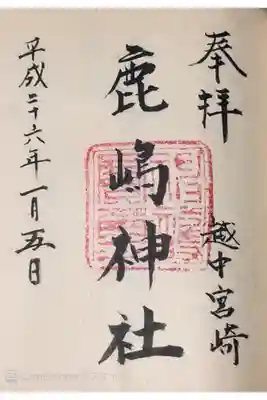 奉拝
越中宮崎
鹿嶋神社
平成二十六年一月五日